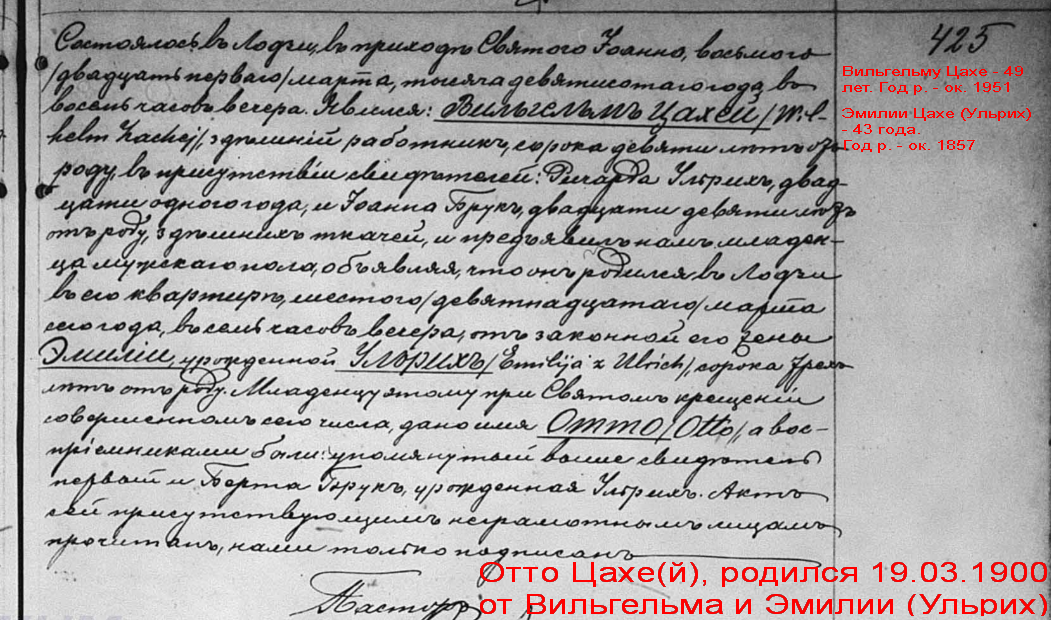 425
Состоялось въ Лодзи, въ приходѣ Святого Іоанна, восьмого
/двадцать перваго/ марта, тысяча девятисотаго года, въ
восемь часовъ вечера. Явился: Вильгельмъ Цахей /Wil-
helm Zachej/, здѣшній работникъ, сорока девяти лѣтъ отъ
роду, въ присутствіи свидѣтелей: Ричарда Ульрихъ, двад-
цати одного года, и Іоанна Брукъ, двадцати девяти лѣтъ
отъ роду, здѣшнихъ ткачей, и предъявилъ намъ младен-
ца мужскаго пола, объявляя, что онъ родился въ Лодзи
въ его квартирѣ, шестого /девятнадцатаго/ марта
сего года, въ семь часовъ вечера, отъ законной его жены
Эмиліи, урожденной Ульрихъ /Emilija z Ulrich/, сорока трехъ
лѣтъ отъ роду. Младенцу этому при Святомъ крещеніи
совершенномъ сего числа, дано имя Отто /Otto/, а вос-
пріемниками были: упомянутый выше свидѣтель
первый и Берта Брукъ, урожденная Ульрихъ. Актъ
сей присутствующимъ неграмотнымъ лицамъ
прочитанъ, нами только подписанъ
Пасторъ
Вильгельму Цахе - 49
лет. Год р. - ок. 1951
Эмилии Цахе (Ульрих)
- 43 года.
Год р. - ок. 1857
Отто Цахе(й), родился 19.03.1900
от Вильгельма и Эмилии (Ульрих)